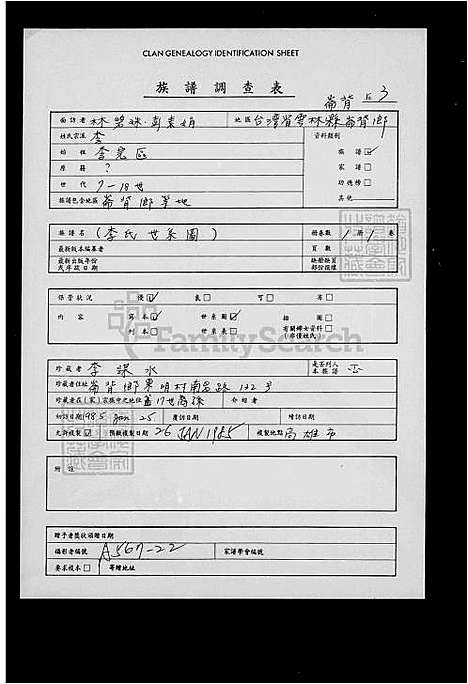 CLAN GENEALOGY IDENTIFICATION SHEET
族譜調查表
崙背 3
面訪者 林 地區 台灣省雲林縣崙背鄉
姓氏宗派 李 資料類別
始祖 李 族譜☑
原籍 ? 家譜□
世代 7-18世 功德榜□
族譜包含地區 崙背鄉等地 其他
族譜名 (李氏世系圖) 冊卷數 1冊1卷
最新版本編纂者 頁數
最新出版年份 缺卷缺頁
或序跋日期 部份描繪
保管狀況 優☑ 良□ 可□ 劣□
內容 寫本☑ 世系圖☑ 插圖□
刊本□ 世系表□ 有關婦女資料□
(非僅姓氏)
FamilySearch
珍藏者 李 水 是否列入本族譜 否
珍藏者住址 崙背鄉東明村南 路 132號
珍藏者在(家)宗族中之地位 17世裔孫 介紹者
初訪日期 985 Jan 25 覆訪日期 增訪日期
允許複製☑ 預期複製日期 26 JAN 1985 複製地點 高雄市
附註
贈予者獎狀頒贈日期
攝影者編號 A567-22 家譜學會編號
要求複本□ 寄贈地址